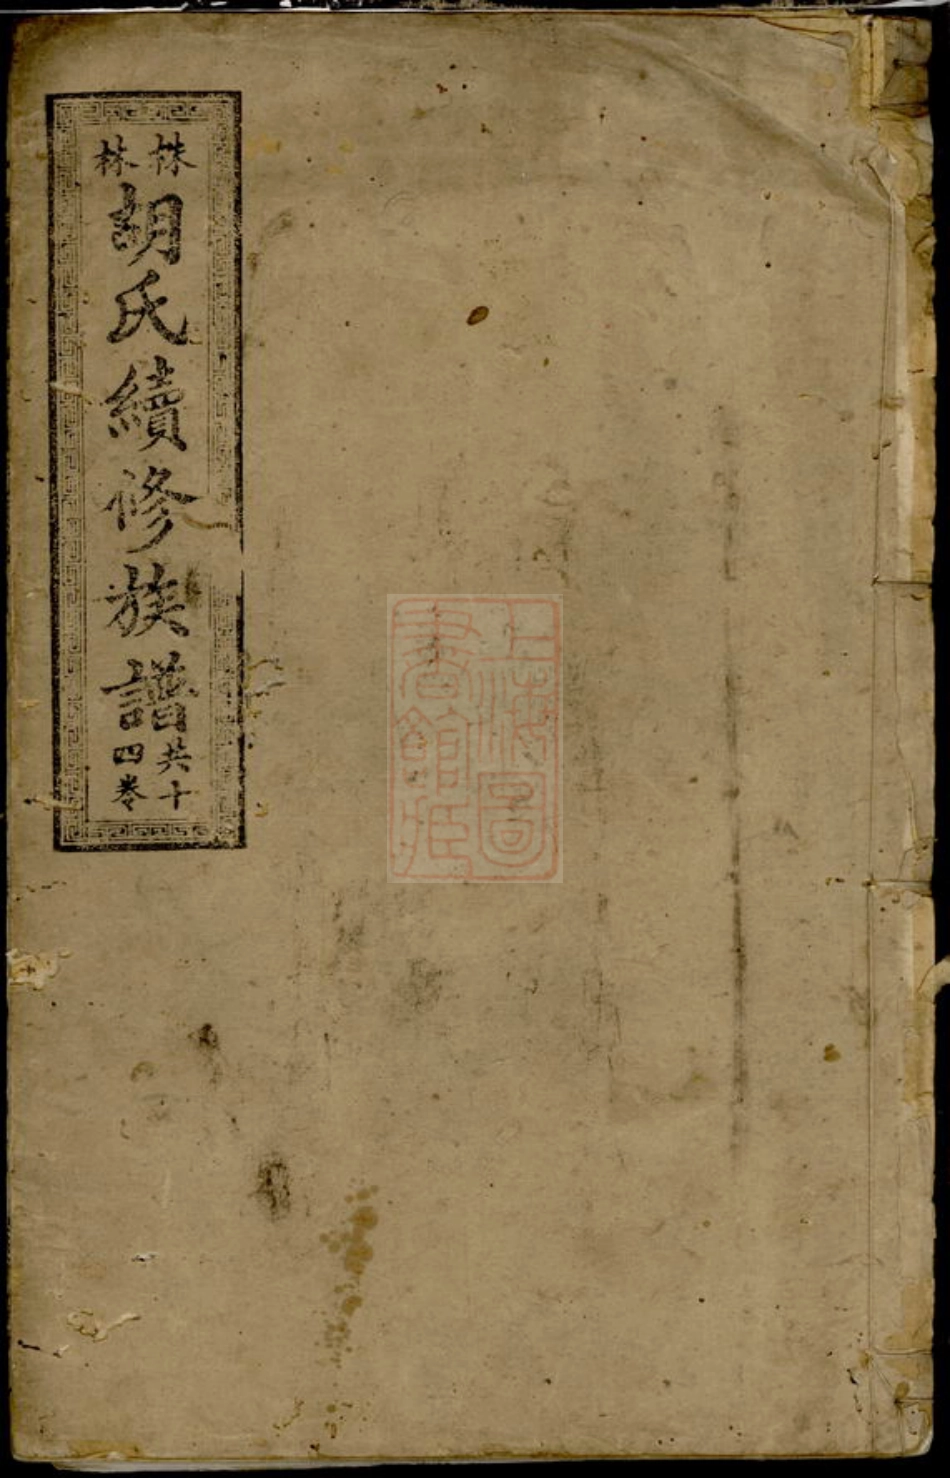 株林
胡氏續修族譜
共十四卷
上海圖書館藏